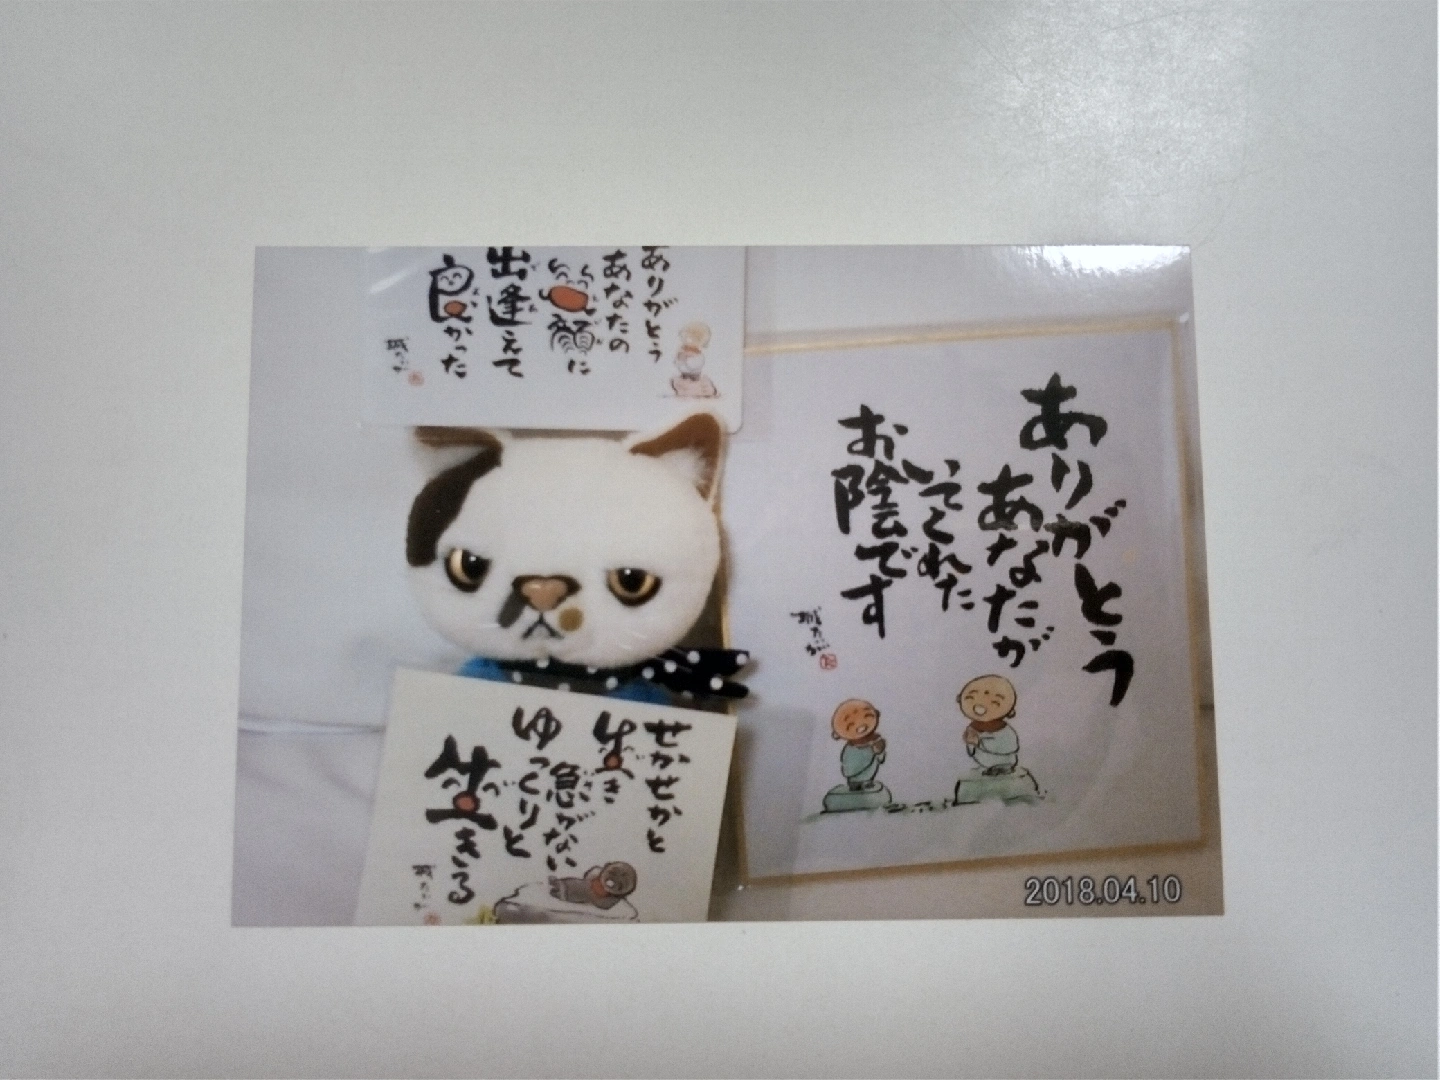 ありがとう
あなたの
笑顔に
出逢えて
良かった
ありがとう
あなたが
いてくれた
お陰です
せかせかと
生き
急がない
ゆっくりと
生きる
2018.04.10